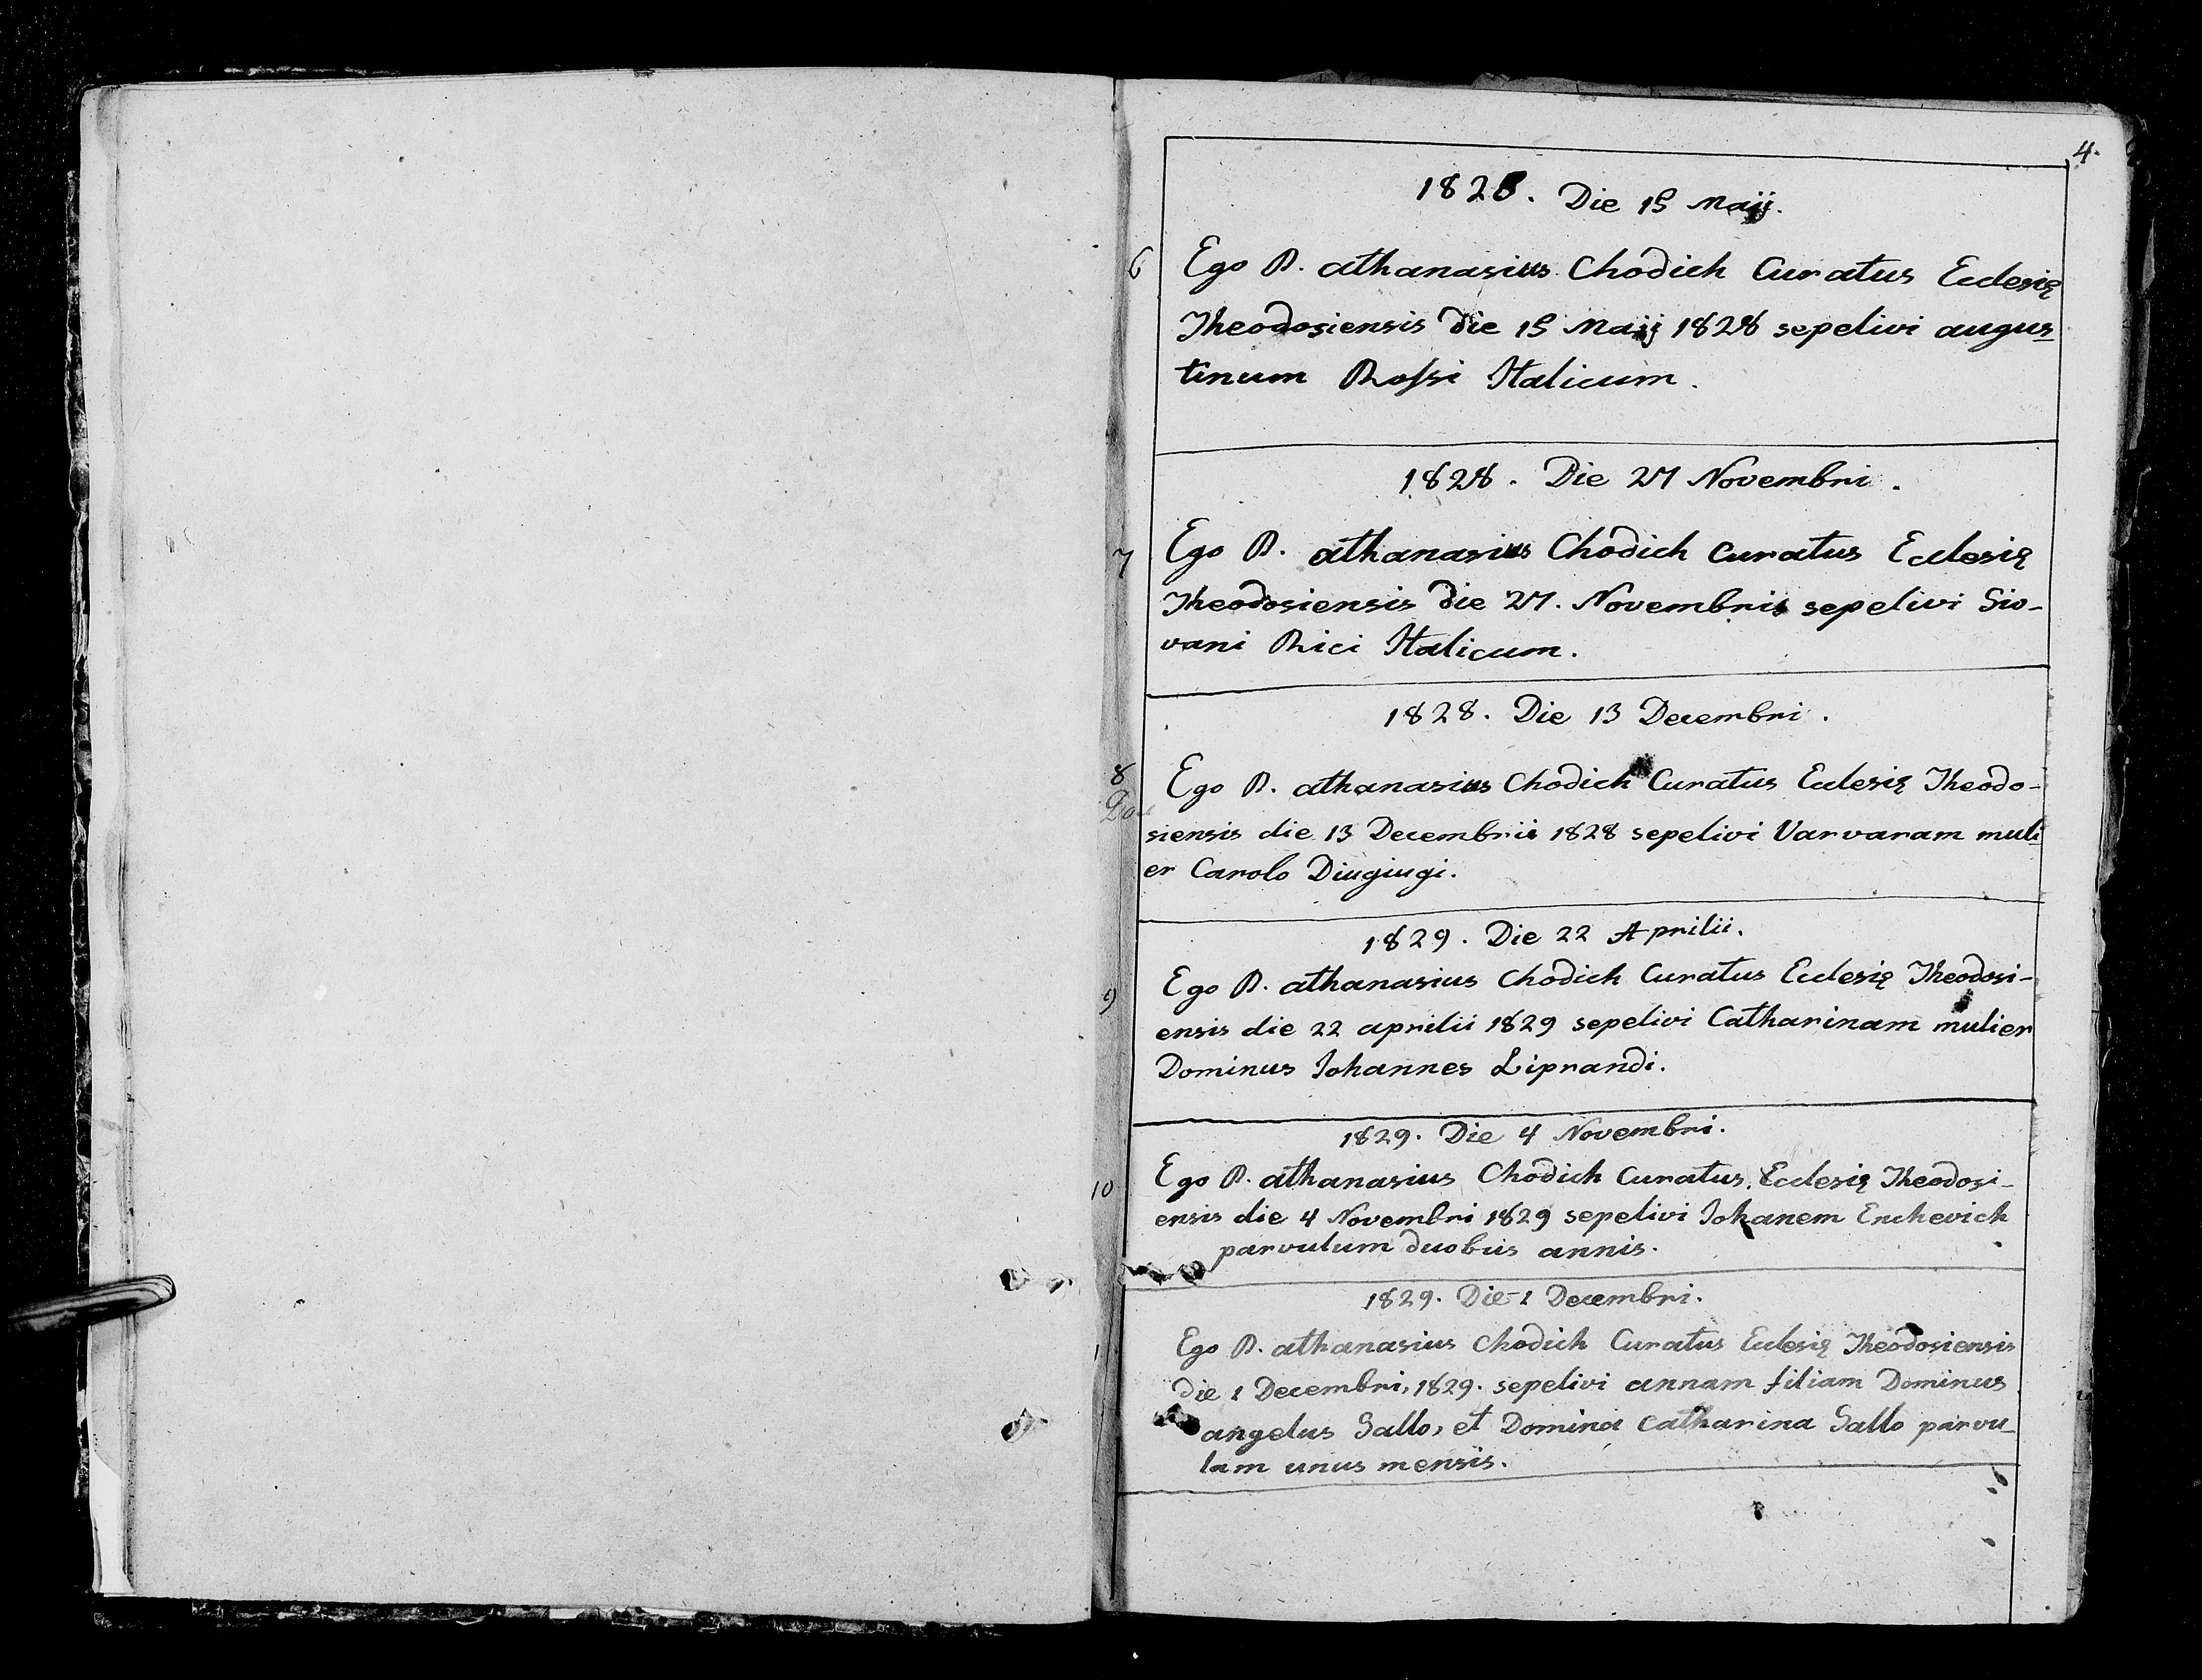 4.
1828. Die 15 Maij.
6 Ego P. athanasius Chodich Curatus Eclesię
Theodosiensis die 15 Maij 1828 sepelivi augus-
tinum Rossi Italicum.
1828. Die 27 Novembri.
7 Ego P. athanasius Chodich Curatus Eclesię
Theodosiensis die 27. Novembris sepelivi Gio-
vani Rici Italicum.
1828. Die 13 Decembri.
8 Ego P. athanasius Chodich Curatus Eclesię Theodo-
siensis die 13 Decembrii 1828 sepelivi Varvaram muli
er Carolo Diugiugi.
1829. Die 22 Aprilii.
9 Ego P. athanasius Chodich Curatus Eclesię Theodosi-
ensis die 22 aprilii 1829 sepelivi Catharinam mulier
Dominus Iohannes Liprandi.
1829. Die 4 Novembri.
10 Ego P. athanasius Chodich Curatus Eclesię Theodosi-
ensis die 4 Novembri 1829 sepelivi Iohanem Enchevich
parvulum duobus annis.
1829. Die 1 Decembri.
Ego P. athanasius Chodich Curatus Eclesię Theodosiensis
die 1 Decembri, 1829. sepelivi annam filiam Dominus
angelus Gallo, et Domina Catharina Gallo parvu-
lam unus mensis.